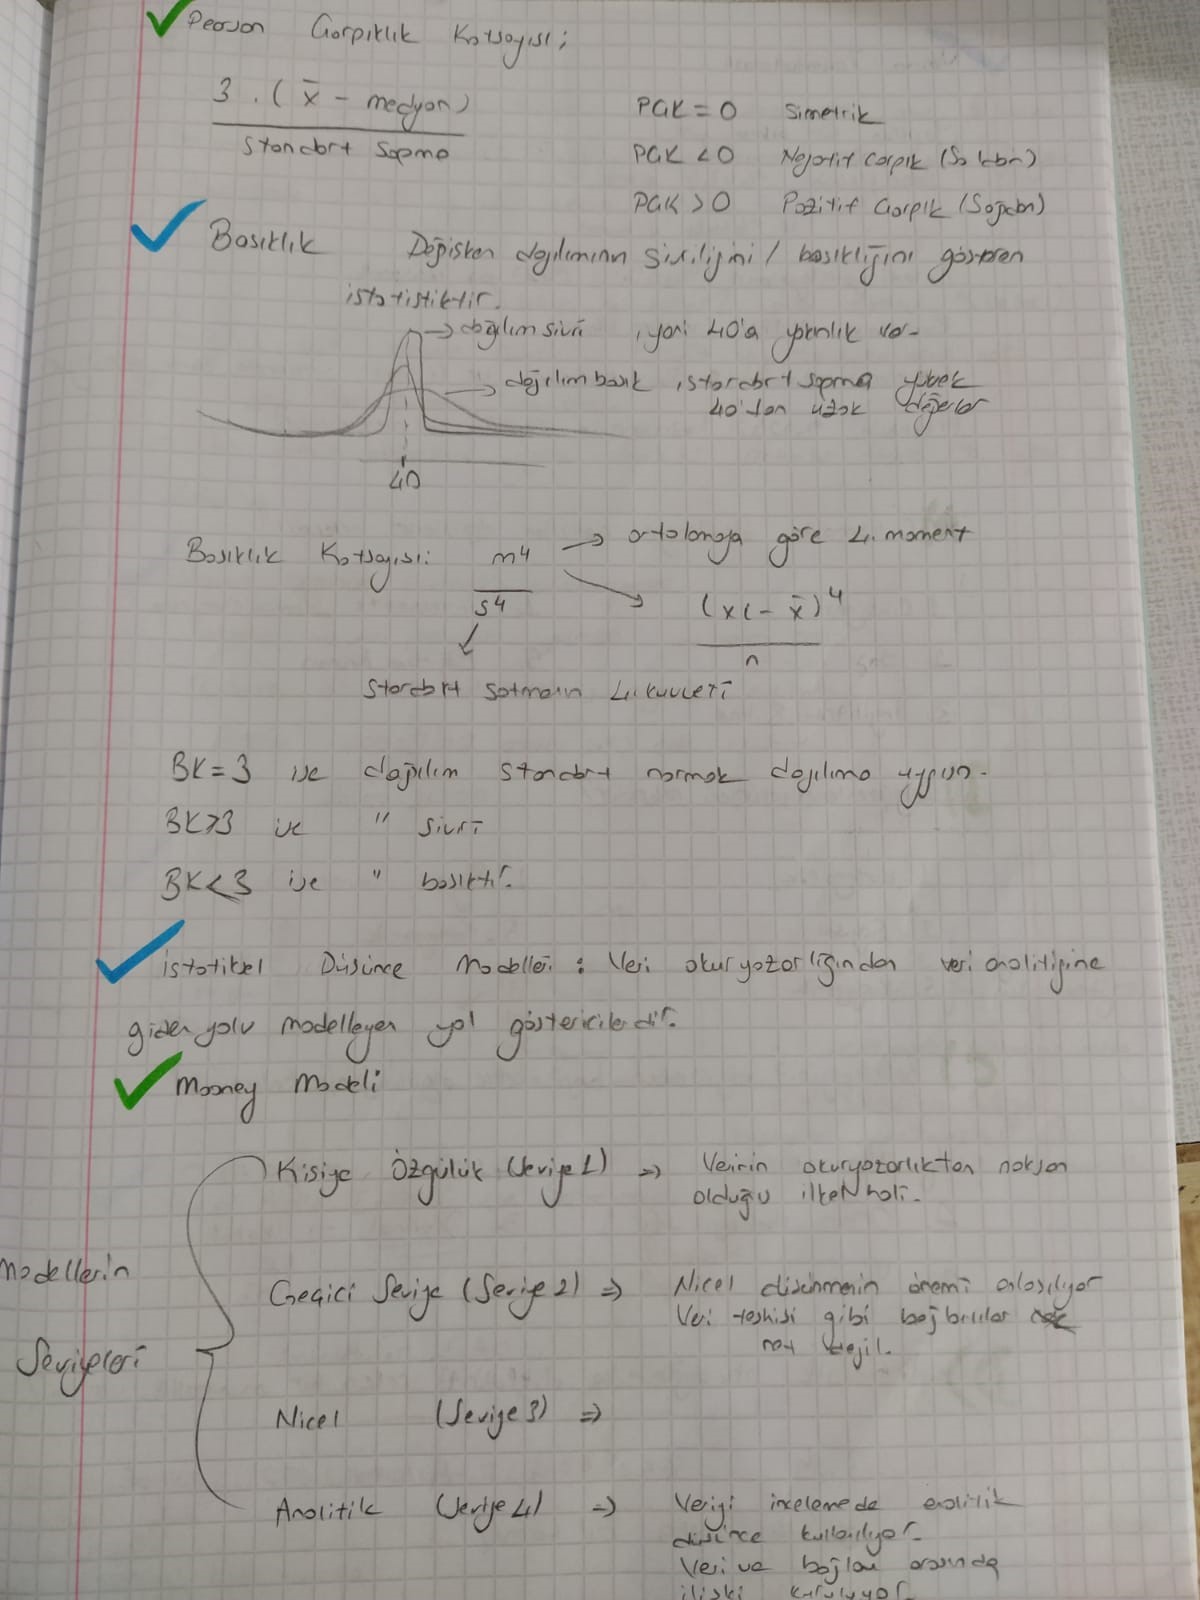 Pearson Çarpıklık Katsayısı;
3 . ( x̄ - medyan)
standart sapma
PÇK = 0 simetrik
PÇK < 0 Negatif Çarpık (Soldan)
PÇK > 0 Pozitif Çarpık (Sağdan)
Basıklık Değişken dağılımının sivriliğini / basıklığını gösteren
istatistiktir.
→ dağılım sivri , yani 40'a yakınlık var
→ dağılım basık , standart sapma yüksek
40'tan uzak değerler
40
Basıklık Katsayısı: m4 → ortalamaya göre 4. moment
s4
(xi - x̄)4
n
standart sapmanın 4. kuvveti
BK = 3 ise dağılım standart normal dağılıma uygun.
BK>3 ise " sivri
BK<3 ise " basıktır.
istatiksel Düşünce Modelleri : Veri okuryazarlığından veri analitiğine
giden yolu modelleyen yol göstericilerdir.
Mooney Modeli
Modellerin
Seviyeleri
Kişiye Özgülük (Seviye 1) => Verinin okuryazarlıktan noksan
olduğu ilkel hali.
Geçici Seviye (Seviye 2) => Nicel düşünmenin önemi anlaşılıyor
Veri teşhisi gibi bağlantılar
net değil.
Nicel (Seviye 3) =>
Analitik (Seviye 4) => Veriyi incelemede analitik
düşünce kullanılıyor.
Veri ve bağlam arasında
ilişki kuruluyor.